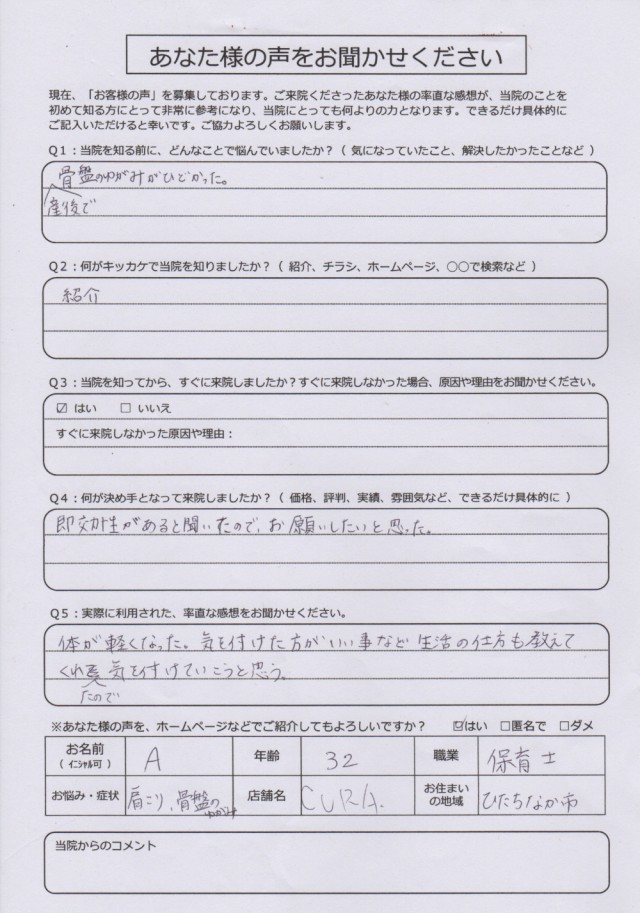 あなた様の声をお聞かせください
現在、「お客様の声」を募集しております。ご来院くださったあなた様の率直な感想が、当院のことを
初めて知る方にとって非常に参考になり、当院にとっても何よりの力となります。できるだけ具体的に
ご記入いただけると幸いです。ご協力よろしくお願いします。
Q1：当院を知る前に、どんなことで悩んでいましたか？（ 気になっていたこと、解決したかったことなど ）
骨盤のゆがみがひどかった。
産後で
Q2：何がキッカケで当院を知りましたか？（ 紹介、チラシ、ホームページ、〇〇で検索など ）
紹介
Q3：当院を知ってから、すぐに来院しましたか？すぐに来院しなかった場合、原因や理由をお聞かせください。
☑ はい □ いいえ
すぐに来院しなかった原因や理由：
Q4：何が決め手となって来院しましたか？（ 価格、評判、実績、雰囲気など、できるだけ具体的に ）
即効性があると聞いたので、お願いしたいと思った。
Q5：実際に利用された、率直な感想をお聞かせください。
体が軽くなった。気を付けた方がいい事など生活の仕方も教えて
くれ 気を付けていこうと思う。
たので
※あなた様の声を、ホームページなどでご紹介してもよろしいですか？ ☑はい □匿名で □ダメ
お名前 A 年齢 32 職業 保育士
（ イニシャル可 ）
お悩み・症状 肩こり、骨盤のゆがみ 店舗名 CURA. お住まいの地域 ひたちなか市
当院からのコメント